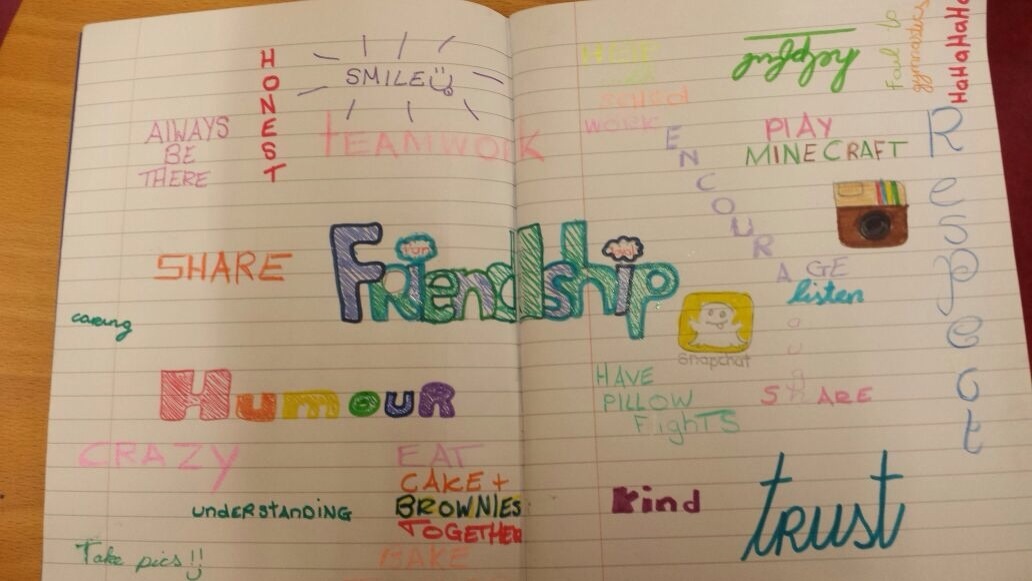 HONEST
SMILE
ALWAYS
BE
THERE
TEAMWORK
SHARE
caring
Friendship
fun
Humour
CRAZY
understanding
Take pics!!
EAT
CAKE +
BROWNIES
TOGETHER
MAKE
HELP
school
WORK
ENCOURAGE
helpful
gymnastics
HaHaHaHaHa
PLAY
MINECRAFT
Respect
listen
laugh
Snapchat
HAVE
PILLOW
FighTS
SHARE
kind
trust